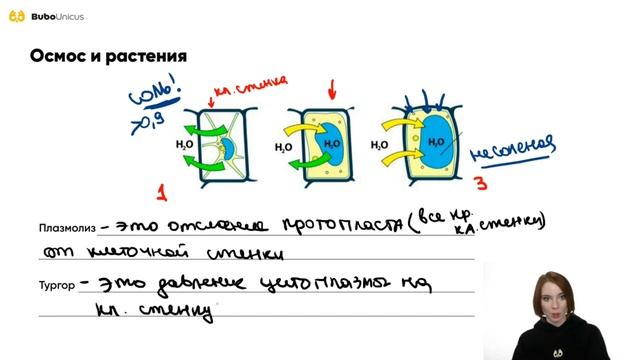 BuboUnicus
Осмос и растения
соль!
>0,9
кл. стенка
H₂O
H₂O
H₂O
H₂O
H₂O
несоленая
1
3
Плазмолиз – это отслоение протопласта (все кр. кл. стенки)
от клеточной стенки
Тургор – это давление цитоплазмы на
кл. стенку